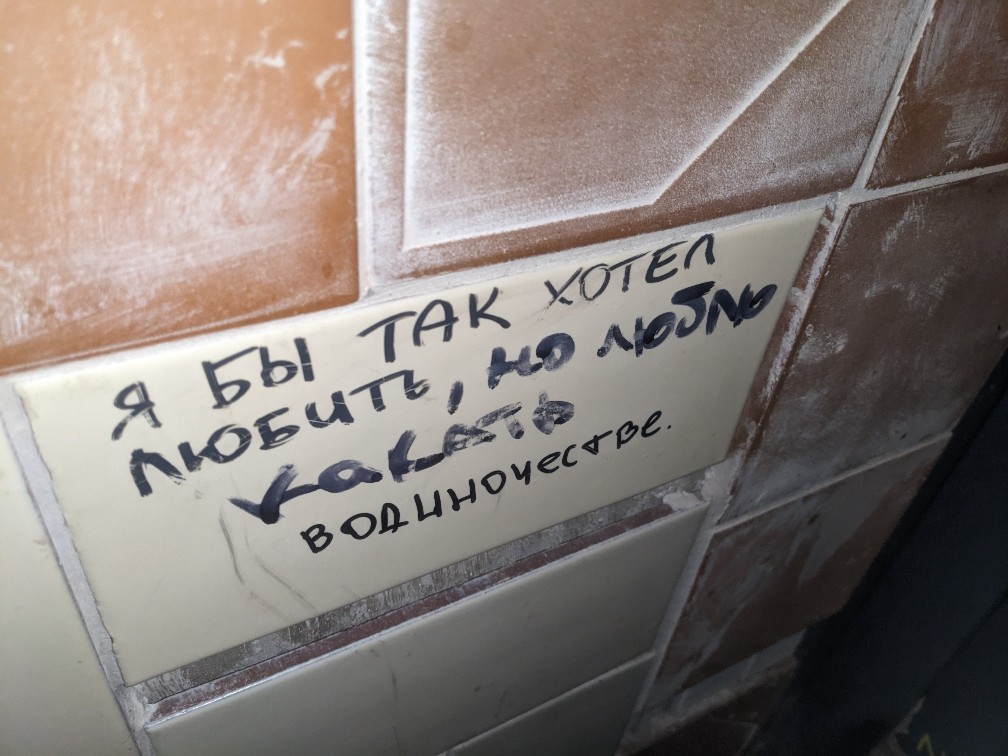 Я БЫ ТАК ХОТЕЛ
ЛЮБИТЬ, НО ЛЮБЛЮ
какать
водиночестве.